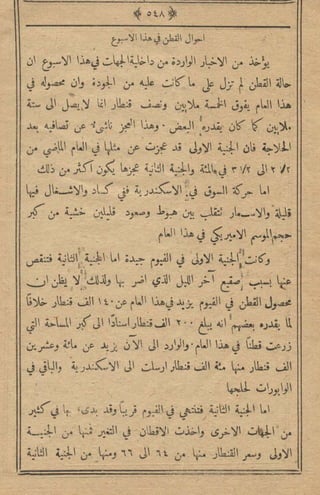 ﴿ ٥٤٨ ﴾
احوال القطن في هذا الاسبوع
يؤخذ من الاخبار الواردة من داخلية الجهات في هذا الاسبوع ان
حالة القطن لم تزل على ما كانت عليه من الجودة وان محصوله في
هذا العام يفوق الخمسة ملايين ونصف قنطار انما لا يصل الى ستة
ملايين كما كان يقدره البعض. وهذا العجز ناشئ عن تصافيه بعد
الحلاجة فان الجنية الاولى قد عجزت عن مثلها في العام الماضي من
٢ ١/٢ الى ٣ ١/٢ في المئة والجنية الثانية عجزها يكون اكثر من ذلك
اما حركة السوق في الاسكندرية ففي كساد والاشغال فيها
قليلة والاسعار لتقلب بين هبوط وصعود قليلين خشية من كبر
حجم الموسم الاميريكي في هذا العام
وكانت الجنية الاولى في الفيوم جيدة اما الجنية الثانية فتنقص
عنها بسبب صقيع آخر الليل الذي اضر بها ولذلك لا يظن ان
محصول القطن في الفيوم يزيد في هذا العام عن ١٤٠ الف قنطار خلافا
لما يقدره بعضهم انه يبلغ ٢٠٠ الف قنطار اسنادا الى كبر المساحة التي
زرعت قطنا في هذا العام. والوارد الى الآن يزيد عن مائة وعشرين
الف قنطار منها مئة الف قنطار ارسلت الى الاسكندرية والباقي في
الوابورات لحلجها
اما الجنية الثانية فتنتهي في الفيوم قريبا وقد بدئ بها في كثير
من الجهات الاخرى واخذت الاقطان في التغير ثمنها من الجنيــة
الاولى وسعر القنطار منها من ٦٤ الى ٦٦ ومنها من الجنية الثانية